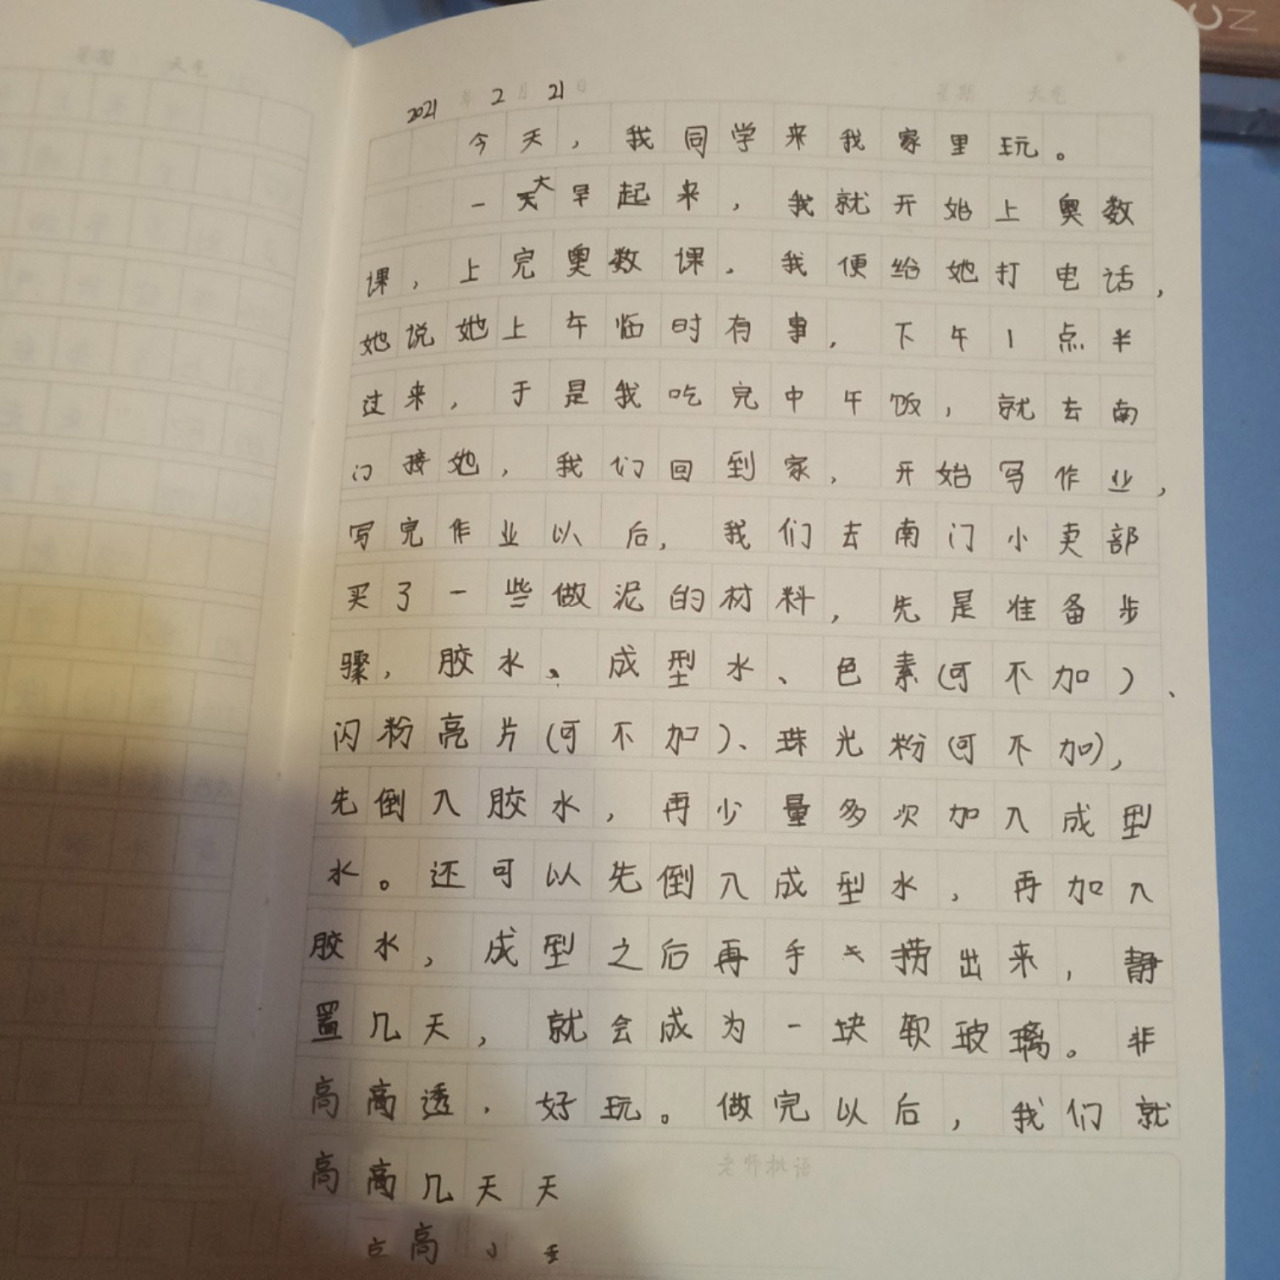 2021年2月21日 星期 天气
今天，我同学来我家里玩。
一大早起来，我就开始上奥数
课，上完奥数课，我便给她打电话，
她说她上午临时有事，下午1点半
过来，于是我吃完中午饭，就去南
门接她，我们回到家，开始写作业，
写完作业以后，我们去南门小卖部
买了一些做泥的材料，先是准备步
骤，胶水、成型水、色素(可不加)、
闪粉亮片(可不加)、珠光粉(可不加)，
先倒入胶水，再少量多次加入成型
水。还可以先倒入成型水，再加入
胶水，成型之后再手捞出来，静
置几天，就会成为一块软玻璃。非
高高透，好玩。做完以后，我们就
老师批语
高高几天天
高小